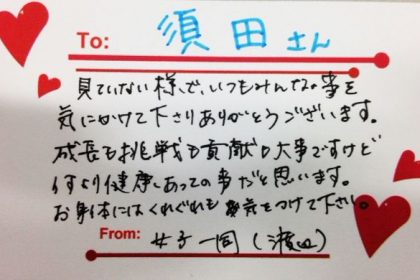 To: 須田さん
見ていない様で、いつもみんなの事を
気にかけて下さりありがとうございます。
成長も挑戦も貢献も大事ですけど
何より健康あっての事だと思います。
お身体にはくれぐれも お気をつけて下さい。
From: 女子一同(濱田)